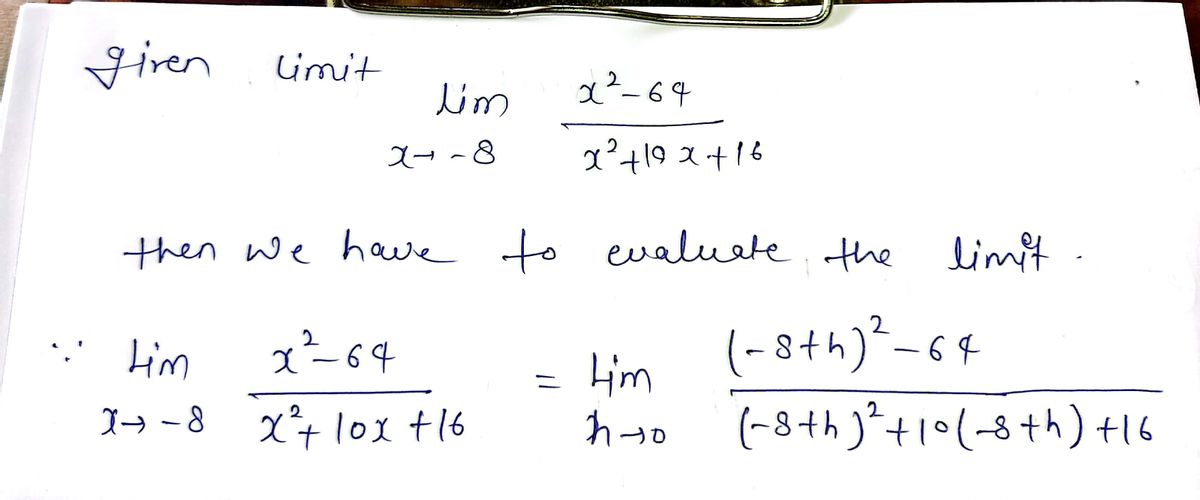 given limit
lim x→-8 (x²-64)/(x²+10x+16)
then we have to evaluate the limit.
∵ Lim x→-8 (x²-64)/(x²+10x+16) = Lim h→0 ((-8+h)²-64)/((-8+h)²+10(-8+h)+16)